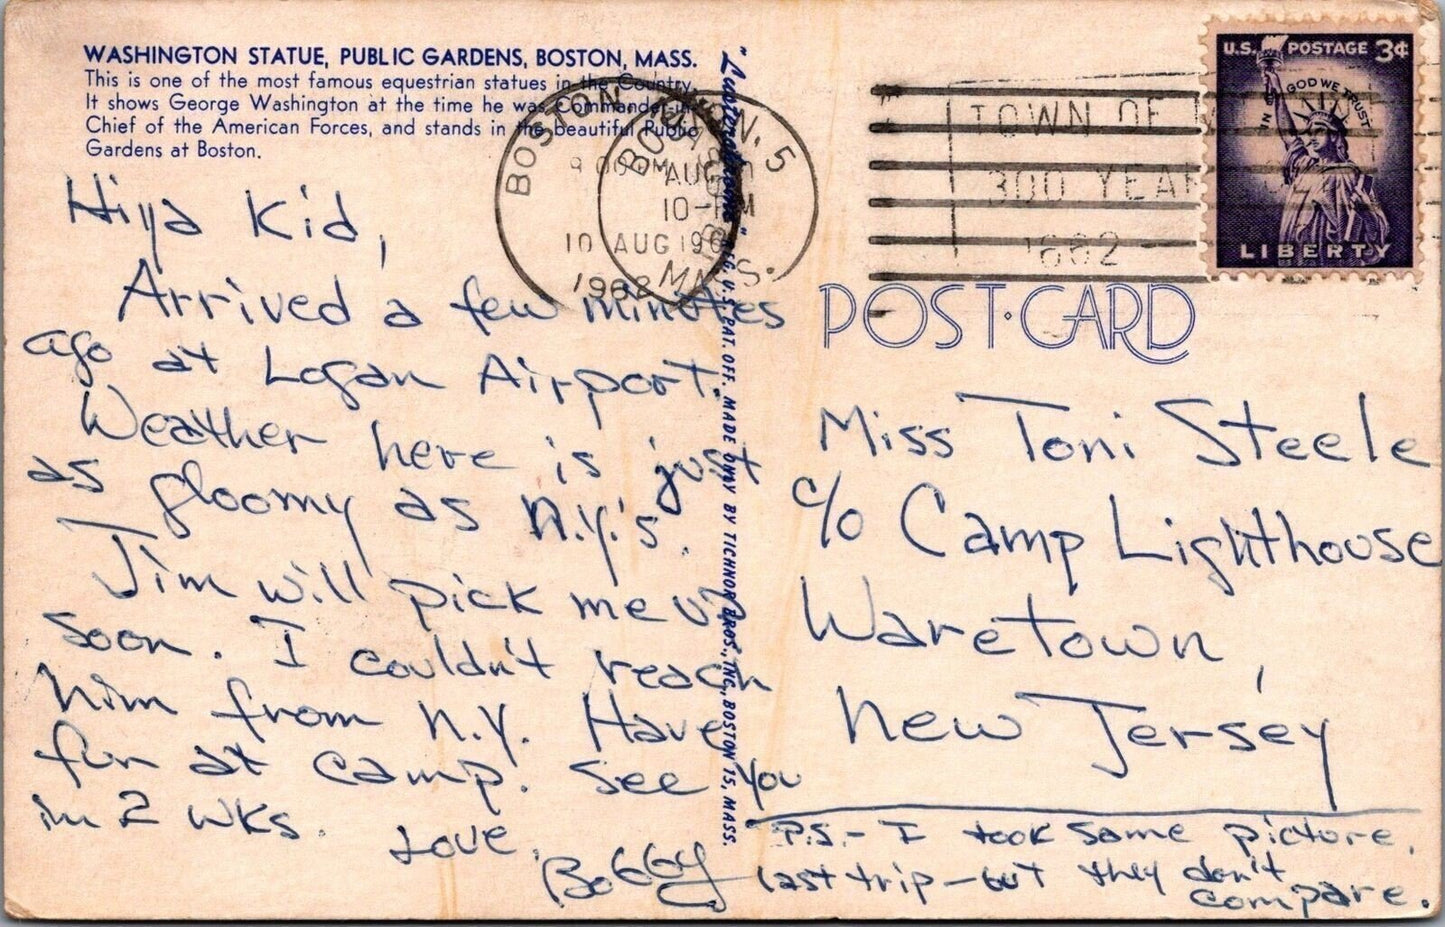 WASHINGTON STATUE, PUBLIC GARDENS, BOSTON, MASS.
This is one of the most famous equestrian statues in the Country.
It shows George Washington at the time he was Commander-in-
Chief of the American Forces, and stands in the beautiful Public
Gardens at Boston.
Hiya Kid,
Arrived a few minutes
ago at Logan Airport.
Weather here is just
as gloomy as N.Y.'s.
Jim will pick me up
soon. I couldn't reach
him from N.Y. Have
fun at camp. See you
in 2 wks.
Love,
Bobby
BOSTON
10 AUG
1962
BOSTON, 5
AUG
10-PM
MASS.
MFG. U.S. PAT. OFF. MADE ONLY BY TICHNOR BROS., INC., BOSTON 15, MASS.
TOWN OF
300 YEAR
1662
U.S. POSTAGE 3¢
IN GOD WE TRUST
LIBERTY
POST·CARD
Miss Toni Steele
c/o Camp Lighthouse
Waretown,
New Jersey
P.S.- I took same picture,
last trip - but they don't
compare.